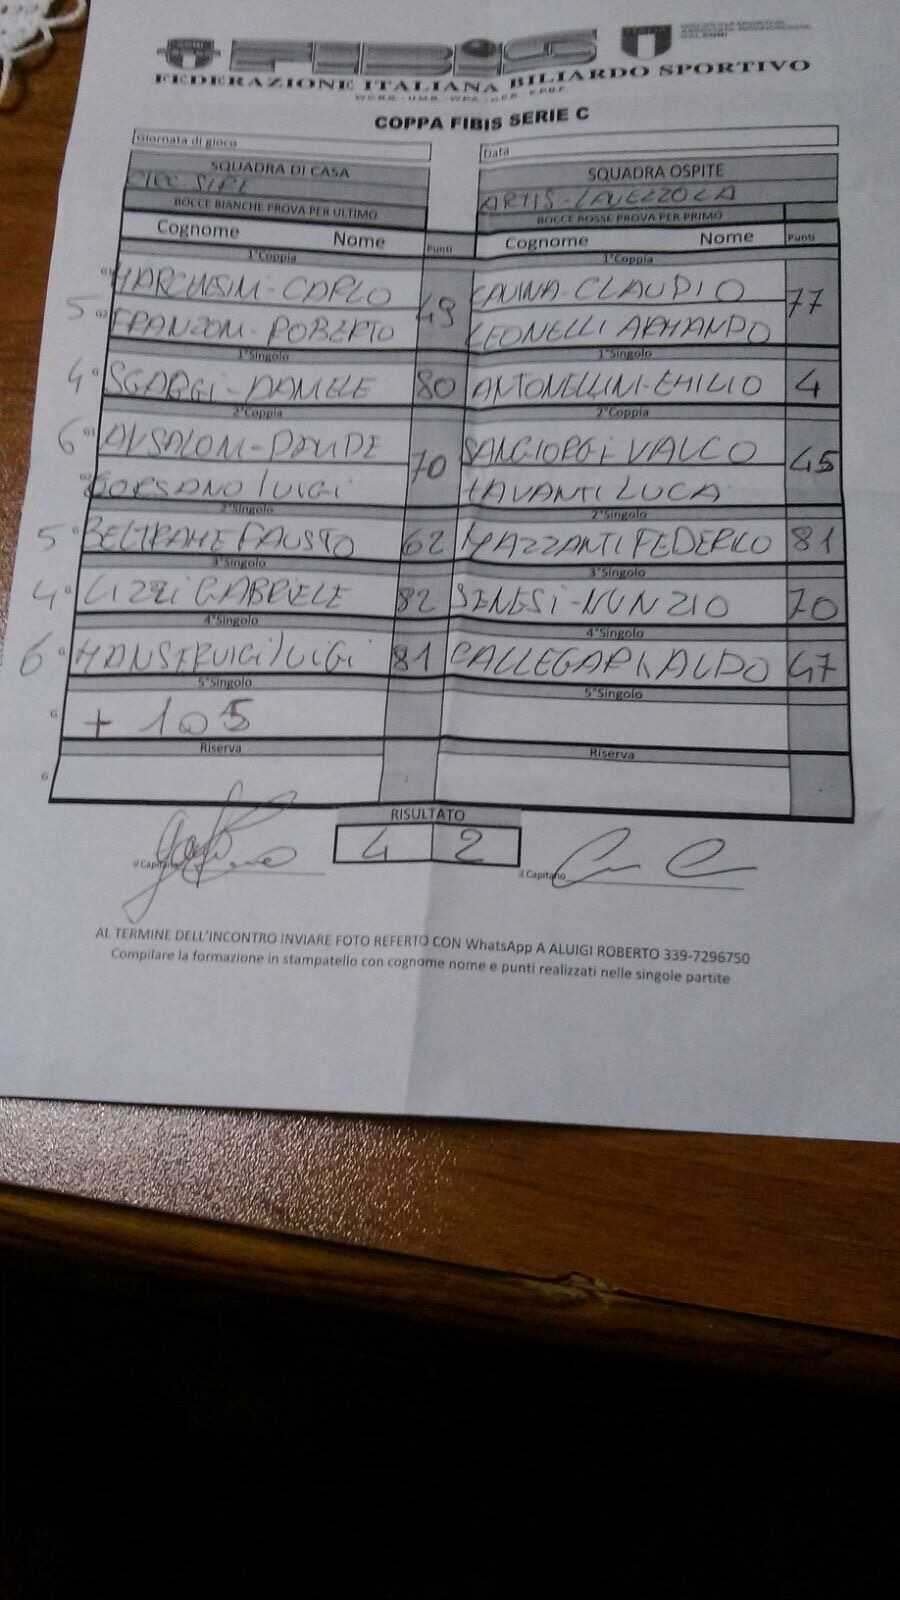 FIBIS
FEDERAZIONE ITALIANA BILIARDO SPORTIVO
COPPA FIBIS SERIE C
Giornata di gioco
Data
SQUADRA DI CASA
SQUADRA OSPITE
CIRC. SIRL
ARTIS-LAVEZZOLA
BOCCE BIANCHE PROVA PER ULTIMO
BOCCE ROSSE PROVA PER PRIMO
Cognome Nome Punti
Cognome Nome Punti
1°Coppia
1°Coppia
5° MARCHESINI-CARLO 49 CAVINA-CLAUDIO 77
FRANZONI-ROBERTO LEONELLI ARMANDO
1°Singolo
1°Singolo
4° SGARGI-DANIELE 80 ANTONELLINI-EMILIO 4
2°Coppia
2°Coppia
6° ANSALONI-DAVIDE 70 SANGIORGI VALCO 45
BORSANO LUIGI TAVANTI LUCA
2°Singolo
2°Singolo
5° BELTRAME FAUSTO 62 MAZZANTI FEDERICO 81
3°Singolo
3°Singolo
4° LIZZI GABRIELE 82 SENESI-NUNZIO 70
4°Singolo
4°Singolo
6° MONSTRUIGI LUIGI 81 CALLEGARI ALDO 47
5°Singolo
5°Singolo
+ 105
Riserva
Riserva
RISULTATO
4 2
il Capitano
il Capitano
AL TERMINE DELL'INCONTRO INVIARE FOTO REFERTO CON WhatsApp A ALUIGI ROBERTO 339-7296750
Compilare la formazione in stampatello con cognome nome e punti realizzati nelle singole partite